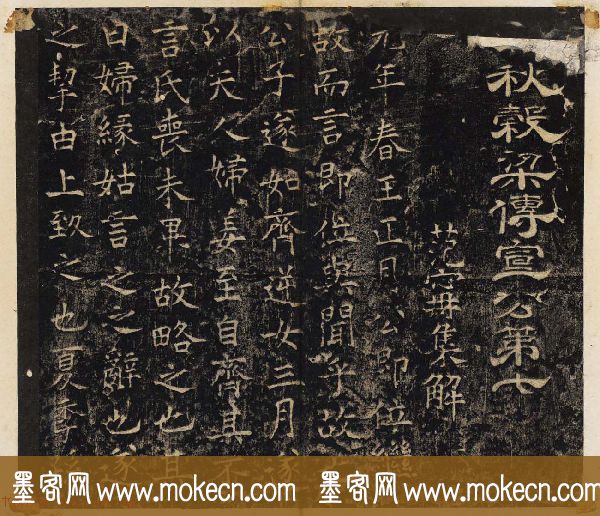 秋穀梁傳宣公第七
范甯集解
元年春王正月公即位繼
故而言即位與聞乎故
公子遂如齊逆女三月遂
以夫人婦姜至自齊其不
言氏喪未畢故略之也其
曰婦緣姑言之之辭也遂
之挈由上致之也夏季
墨客网 www.mokecn.com 墨客网 www.mokecn.com